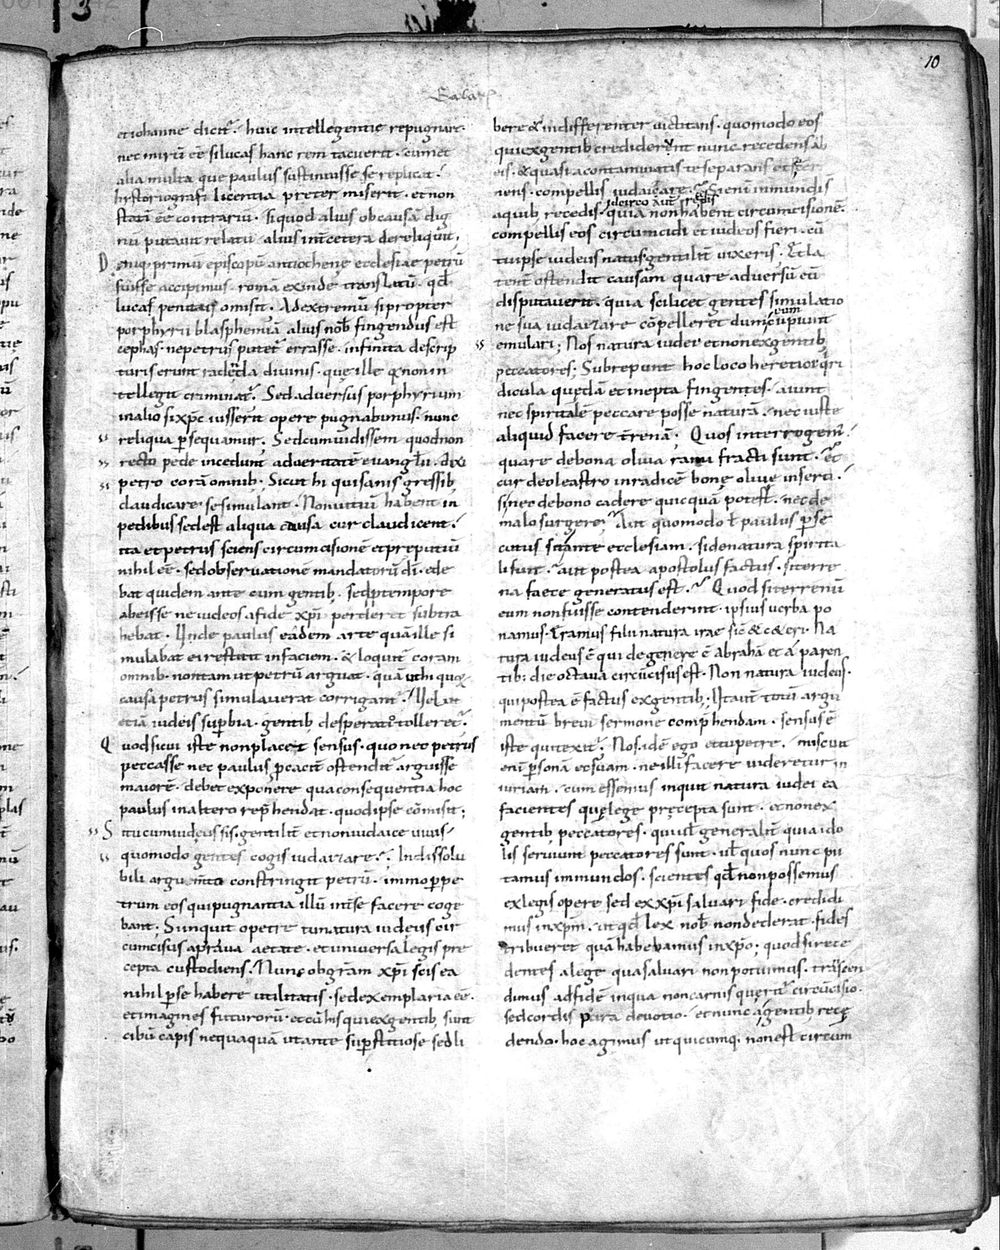 10
Galat
et iohanne dicit͛. huic intellegentie repugnare.
nec mirū eē si lucas hanc rem tacuerit. cum et
alia multa que paulus sustinuisse se replicat.
hystoriografi licentia preter miserit. et non
statī eē contrariū. si quod alius ob causā dig
nū putauit relatū. alius int̄ cetera dereliquit.
Deniq; primū episcopū antiochene ecclesiae petrū
fuisse accipimus. romā exinde translatū. qđ
lucas penitus omisit. Ad extremū si propter
porphyrii blasphemiā alius nob̄ fingendus est
cephas. ne petrus putet͛ errasse. infinita de scrip
turis erunt radēda diuinis. que ille q̄ non in
tellegit criminat͛. Sed aduersus porphyrium
in alio si xp̄c iusserit opere pugnabimus. nunc
reliqua p̱sequamur. Sed cum uidissem quod non
recto pede incedunt ad ueritatē euangl̄ii. dixi
petro corā omnib. Sicut hi qui sanis gressib
claudicare se simulant. Non uitiū habent in
pedibus sed est aliqua causa cur claudicent.
ita et petrus sciens circumcisionē et preputiū
nihil eē. sed obseruationē mandatorū dī. ede
bat quidem ante cum gentib. sed p̱ tempore
abeisse ne iudeos a fide xp̄i perderet subtra
hebat. Unde paulus eādem arte qua ille si
mulabat ei restitit in faciem. & loquit͛ coram
omnib. non tam ut petrū arguat. quā ut hi quoꝝ
causa petrus simulauerat corrigant͛. Vel ut
etiā iudeis sup̱bia. gentib desperatio tolleret͛.
Quod si cui iste non placet sensus. quo nec petrus
peccasse nec paulus p̱cacit͛ ostendit͛ arguisse
maiorē. debet exponere qua consequentia hoc
paulus in altero rep̄hendat. quod ipse cōmisit;
Si tu cum iudeus sis. gentilit͛ et non iudaice uiuis.
quomodo gentes cogis iudaizare? Indissolu
bili argumēto constringit petrū. immo p̱ pe
trum eos qui pugnantia illū int̄ se facere coge
bant. Si inquit o petre tu natura iudeus cir
cumcisus a parua aetate. et uniuersa legis pre
cepta custodiens. Nunc ob grām xp̄i scis ea
nihil p̱ se habere utilitatis. sed exemplaria eē.
et imagines futurorū. et cū his qui ex gentib; sunt
cibū capis nequaquā ut ante sup̱stitiose sed li
bere & indifferenter uictitans. quomodo eos
qui ex gentib crediderunt nunc recedens ab
eis. & quasi a contaminatis te separans et secer
nens. compellis iudaizare. Si enī inmundi s̄
a quib; recedis. idcirco aut͛ redis quia non habent circumcisionē.
compellis eos circumcidi et iudeos fieri. cū
tu ipse iudeus natus gentilit͛ uixeris. Et la
tent͛ ostendit causam quare aduersū eū
disputauerit. quia scilicet gentes simulatio
ne sua iudaizare cōpelleret dum eum cupiunt
emulari; Nos natura iudei et non ex gentib
peccatores; Subrepunt hoc loco heretici qui ri
dicula quedā et inepta fingentes. aiunt
nec spiritale peccare posse naturā. nec iuste
aliquid facere t̄renā. Quos interrogem͛.
quare de bona oliua rami fracti sunt. et
cur de oleastro in radicē bone oliue inserti.
si nec de bono cadere quicquā potest. nec de
malo surgere; Aut quomodo ł paulus p̱se
cutus sit ante ecclesiam. si de natura spirita
li fuit. aut postea apostolus factus. si terre
na faece generatus est. Quod si terrenū
eum non fuisse contenderint. ipsius uerba po
namus. Eramus filii natura irae sic̄ & ceteri. Na
tura iudeus ē qui de genere ē abrahā et a paren
tib; die octaua circūcisus est. Non natura iudeus.
qui postea ē factus ex gentib; Ut aut͛ totū argu
mentū breui sermone comp̄hendam. sensus ē
iste qui texit͛. Nos. idē ego et tu petre. miscuit
enī p̱sonā et suam. ne illi facere uideretur in
iuriam. cum essemus inquit natura iudei ea
facientes que lege precepta sunt. et non ex
gentib peccatores. qui uł generalit͛ quia ido
lis seruiunt peccatores sunt. uł quos nunc pu
tamus immundos. scientes qđ non possemus
ex legis opere sed ex xp̄i saluari fide. credidi
mus in xp̄m. ut qđ lex nob̄ non dederat. fides
tribueret quā habebamus in xp̄o; quod si rece
dentes a lege qua saluari non potuimus. trāscen
dimus ad fidē in qua non carnis querit͛ circūcisio.
sed cordis pura deuotio. et nunc a gentib; rece
dendo. hoc agimus ut quicumq; non est circum